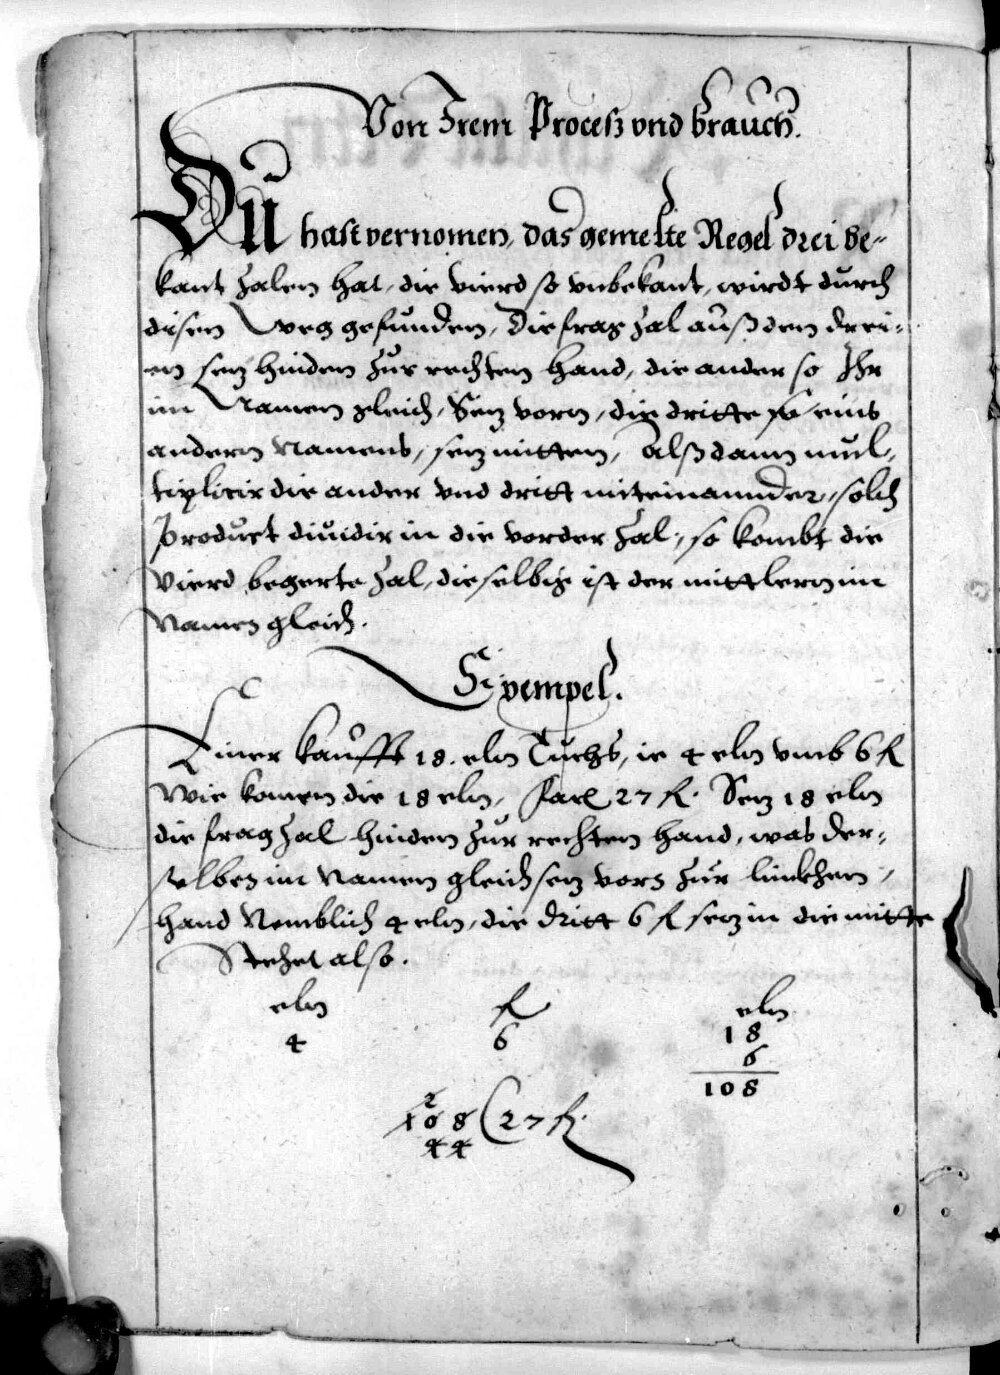 Von Irem Proceß vnd brauch.
Du hast vernomen, das gemelte Regel drei be-
kant zalen hat, die vierd so vnbekant, wirdt durch
disen weg gefunden, Die frag zal auß den drei-
en setz hinden zur rechten hand, die ander so Ihr
im Namen gleich, Setz vorn, die dritte so eins
andern Namens, setz mitten, Alß dann mul-
tiplicir die ander vnd dritt miteinannder, solch
Product diuidir in die vorder zal, so kombt die
vierd begerte zal, dieselbig ist der mittlern im
Namen gleich.
Exempel.
Einer kaufft 18. eln Tuchs, ie 4 eln vmb 6 fl
Wie komen die 18 eln, facit 27 fl. Setz 18 eln
die frag zal hinden zur rechten hand, was der-
selben im Namen gleich setz vorn zur linckhen
hand Nemblich 4 eln, die dritt 6 fl setz in die mitte
Stehet also.
eln fl eln
4 6 18
6
108
2
108 (27 fl.
44